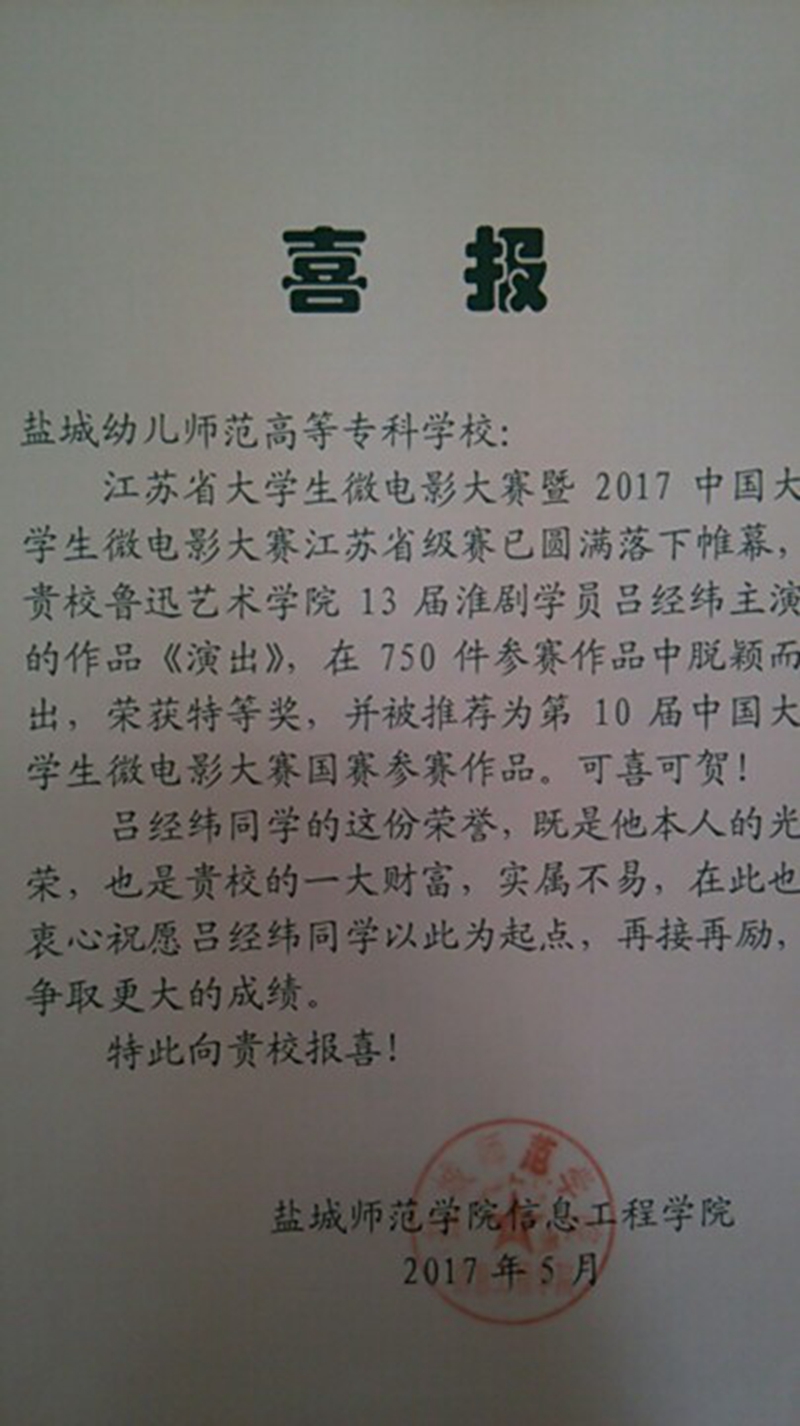 喜报
盐城幼儿师范高等专科学校：
江苏省大学生微电影大赛暨 2017 中国大
学生微电影大赛江苏省级赛已圆满落下帷幕，
贵校鲁迅艺术学院 13 届淮剧学员吕经纬主演
的作品《演出》，在 750 件参赛作品中脱颖而
出，荣获特等奖，并被推荐为第 10 届中国大
学生微电影大赛国赛参赛作品。可喜可贺！
吕经纬同学的这份荣誉，既是他本人的光
荣，也是贵校的一大财富，实属不易，在此也
衷心祝愿吕经纬同学以此为起点，再接再励，
争取更大的成绩。
特此向贵校报喜！
范
盐城师范学院信息工程学院
2017 年 5 月